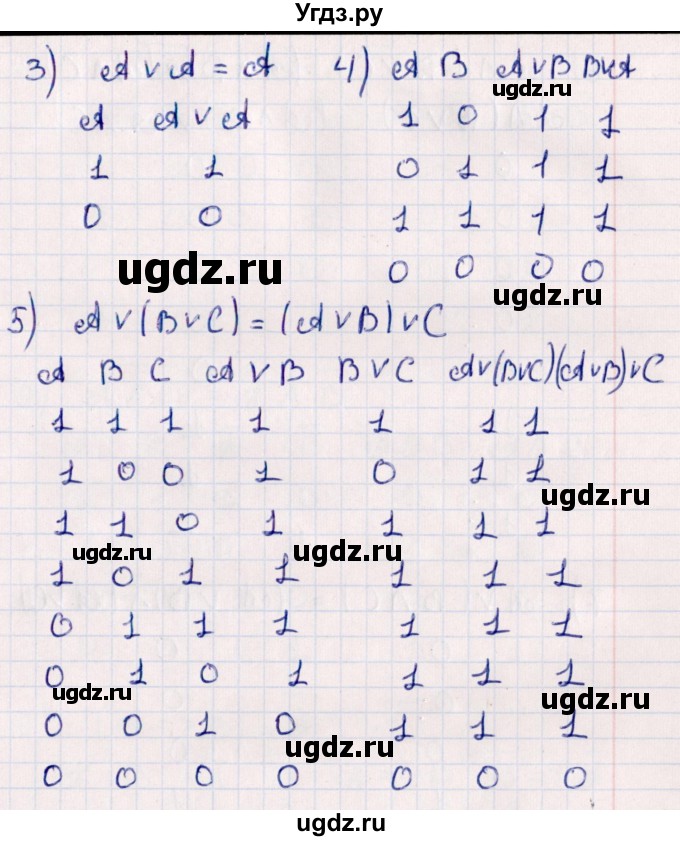 Угдз.ру
3) A ∨ A = A
A A ∨ A
1 1
0 0
4) A B A∨B B∨A
1 0 1 1
0 1 1 1
1 1 1 1
0 0 0 0
ugdz.ru
ugdz.ru
ugdz.ru
5) A ∨ (B ∨ C) = (A ∨ B) ∨ C
A B C A ∨ B B ∨ C A∨(B∨C) (A∨B)∨C
1 1 1 1 1 1 1
1 0 0 1 0 1 1
ugdz.ru
1 1 0 1 1 1 1
ugdz.ru
ugdz.ru
1 0 1 1 1 1 1
0 1 1 1 1 1 1
0 1 0 1 1 1 1
ugdz.ru
ugdz.ru
0 0 1 0 1 1 1
ugdz.ru
0 0 0 0 0 0 0
ugdz.ru